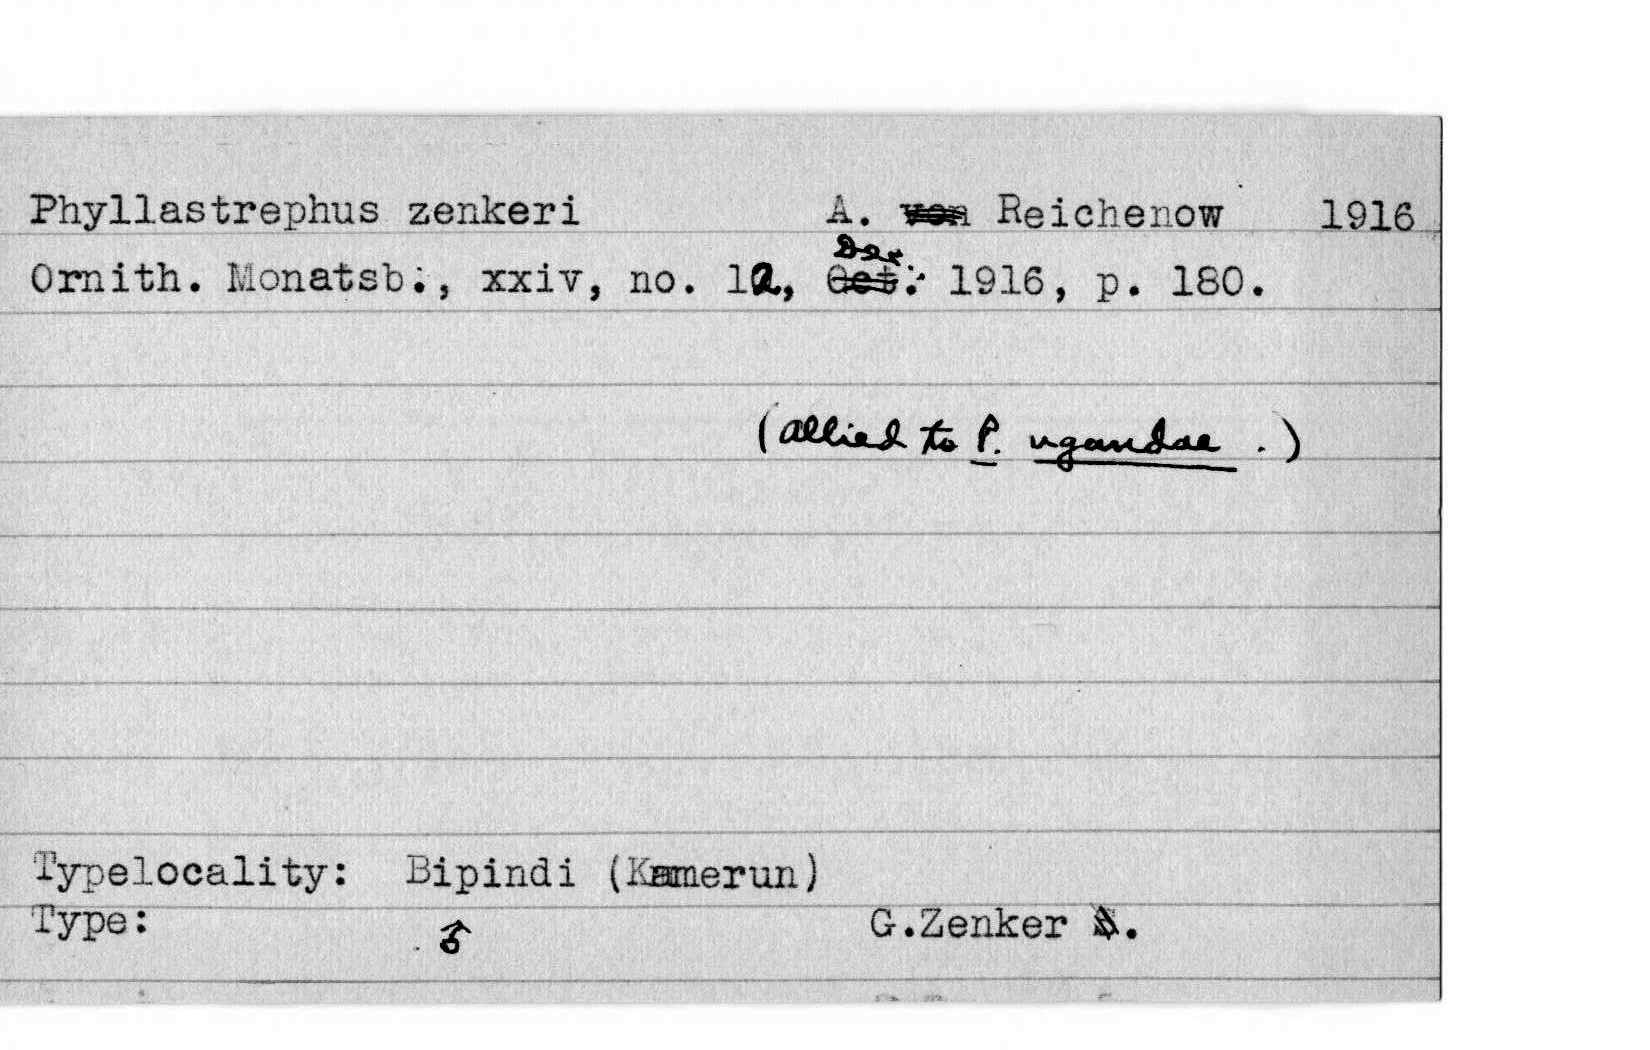 Phyllastrephus zenkeri A. von Reichenow 1916
Dec.
Ornith. Monatsb., xxiv, no. 12, Oct. 1916, p. 180.
(allied to P. ugandae.)
Typelocality: Bipindi (Kamerun)
Type: ♂ G.Zenker